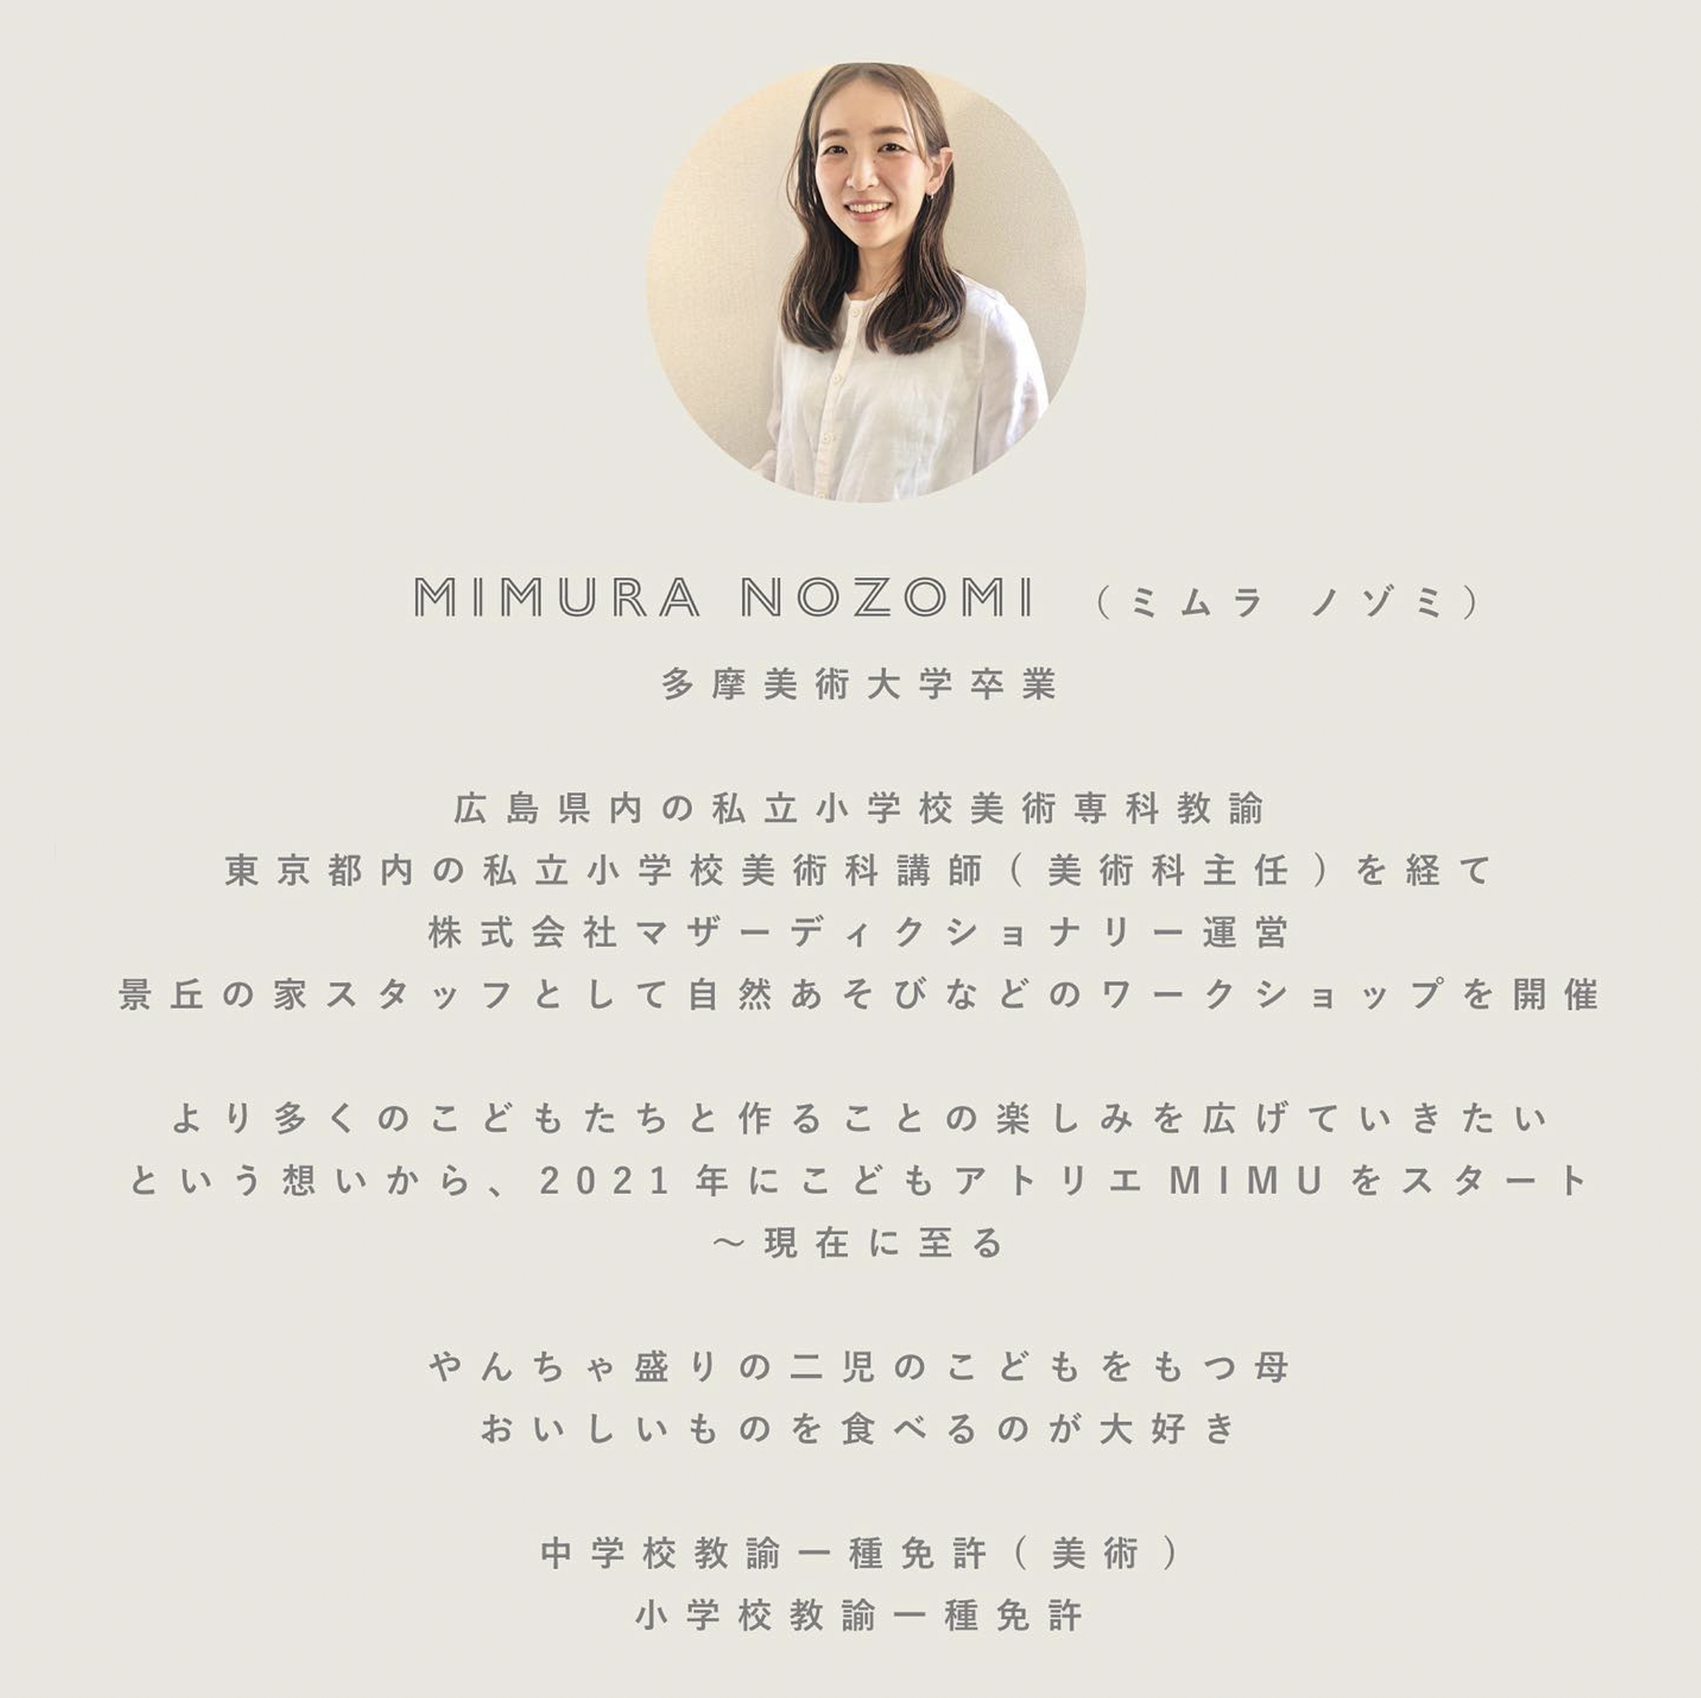 MIMURA NOZOMI （ミムラ ノゾミ）
多摩美術大学卒業
広島県内の私立小学校美術専科教諭
東京都内の私立小学校美術科講師（美術科主任）を経て
株式会社マザーディクショナリー運営
景丘の家スタッフとして自然あそびなどのワークショップを開催
より多くのこどもたちと作ることの楽しみを広げていきたい
という想いから、2021年にこどもアトリエMIMUをスタート
～現在に至る
やんちゃ盛りの二児のこどもをもつ母
おいしいものを食べるのが大好き
中学校教諭一種免許（美術）
小学校教諭一種免許